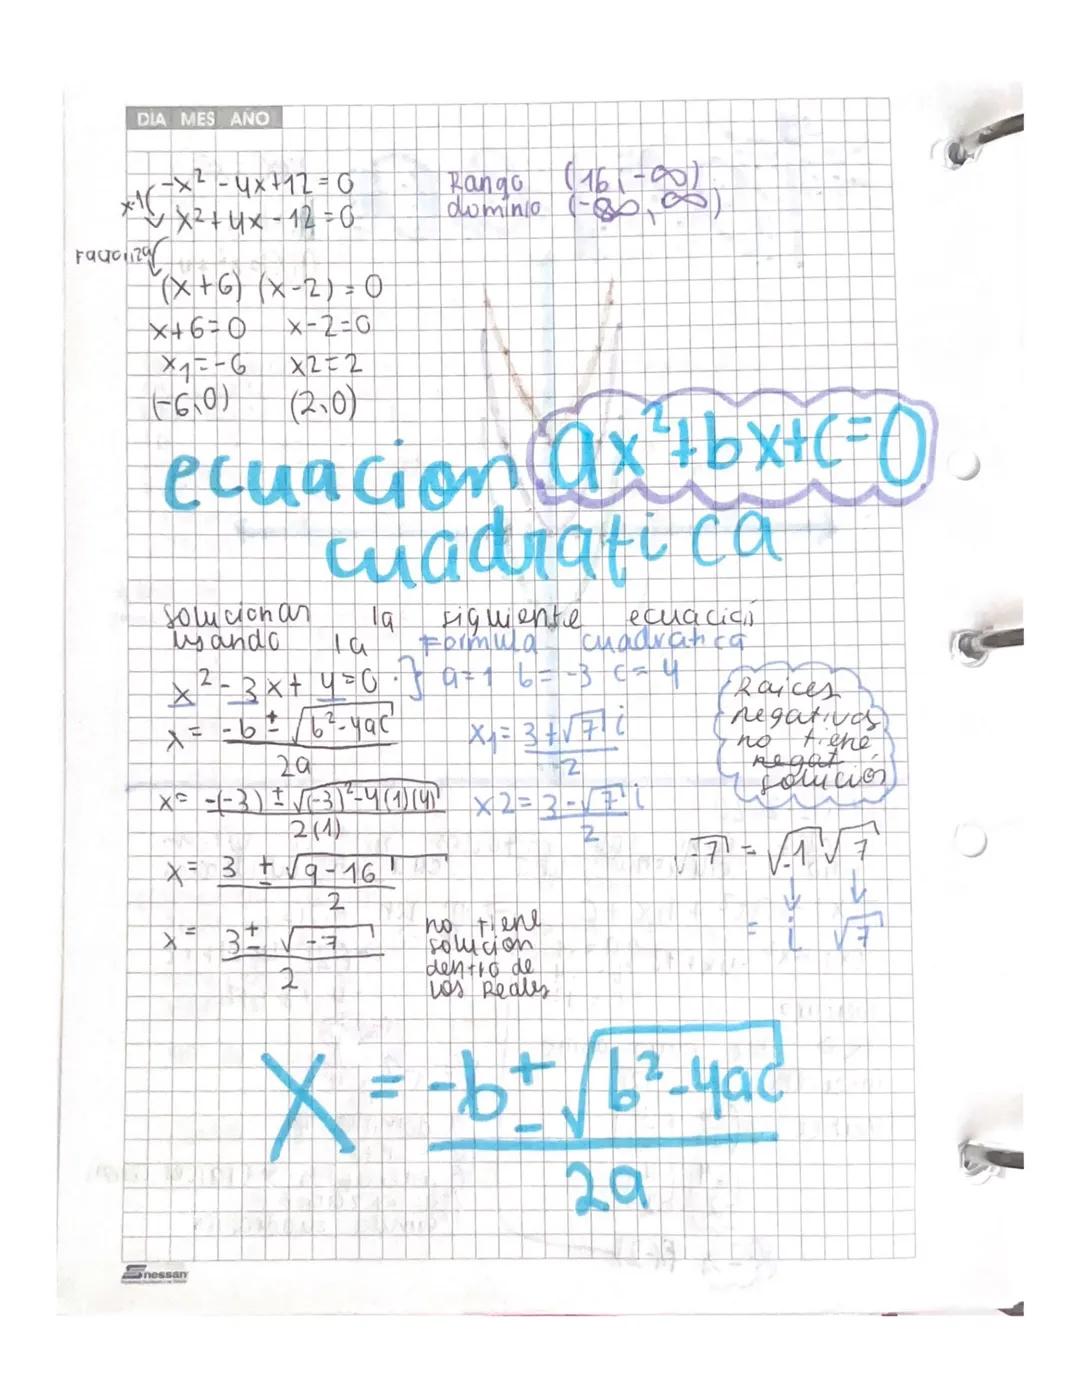 DIA MES AÑO
-x² - 4x+12=0
x-1
x²+4x-12=0
Rango (16,-∞)
dominio (-∞, ∞)
Factoriza
(x+6) (x-2)=0
x+6=0 x-2=0
x₁=-6 x2=2
(-6,0) (2,0)
ecuacion ax²+bx+c=0
cuadratica
solucionar la siguiente ecuación
usando la Formula cuadratica
x²-3x+4=0 } a=1 b=-3 c=4
x= -b±√b²-4ac
2a
x= -(-3)±√(-3)²-4(1)(4)
2(1)
x= 3 ± √9-16
2
x= 3± √-7
2
no tiene
solucion
dentro de
los Reales
x₁= 3+√7 i
2
x2= 3-√7 i
2
Raices
negativas
no tiene
negat
solución
√-7 = √-1 √7
= i √7
X = -b±√b²-4ac
2a
nessan